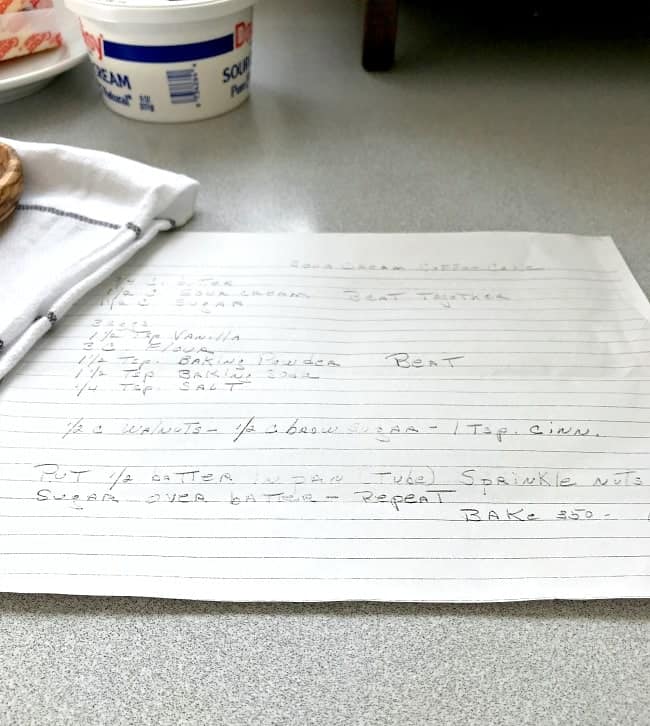 Daisy
SOUR CREAM
SOUR CREAM COFFEE CAKE
BUTTER
SOUR CREAM BEAT TOGETHER
SUGAR
3 EGGS
1 1/2 Tsp VANILLA
3 C FLOUR
1 1/2 Tsp. BAKING POWDER BEAT
1 1/2 Tsp BAKING SODA
1/4 Tsp. SALT
1/2 C WALNUTS - 1/2 C brow SUGAR - 1 Tsp. CINN.
PUT 1/2 bATTER IN PAN (Tube) SPRINKle NUTS
SUGAR OVER bATTER - REPEAT
BAKe 350 -